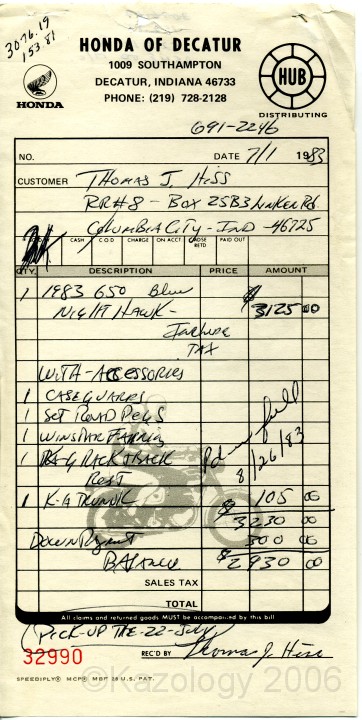 3076.19
153.81
HONDA OF DECATUR
1009 SOUTHAMPTON
DECATUR, INDIANA 46733
PHONE: (219) 728-2128
HONDA
HUB
DISTRIBUTING
691-2246
NO. DATE 7/1 1983
CUSTOMER THOMAS J. HISS
RR#8 - BOX 25B3 LINKER RD
COLUMBIA CITY - IND - 46725
CASH C O D CHARGE ON ACCT MDSE RETD PAID OUT
QTY. DESCRIPTION PRICE AMOUNT
1 1983 650 Blue
NIGHT HAWK - $3125 00
Include
TAX
WITH - ACCESSORIES
1 CASEGUARDS
1 SET ROAD PEGS
1 FARRING
1 K-G RACK & BACK
REST
1 K-G TRUNK $105 00
Pd in full
8/26/83
$3230 00
DOWN Payment 300 00
BALANCE $2930 00
SALES TAX
TOTAL
All claims and returned goods MUST be accompanied by this bill
(PICK-UP THE-22-July)
32990 REC'D BY Thomas J. Hiss
SPEEDIPLY® MCP® MBP 28 U.S. PAT.
©Kazology 2006